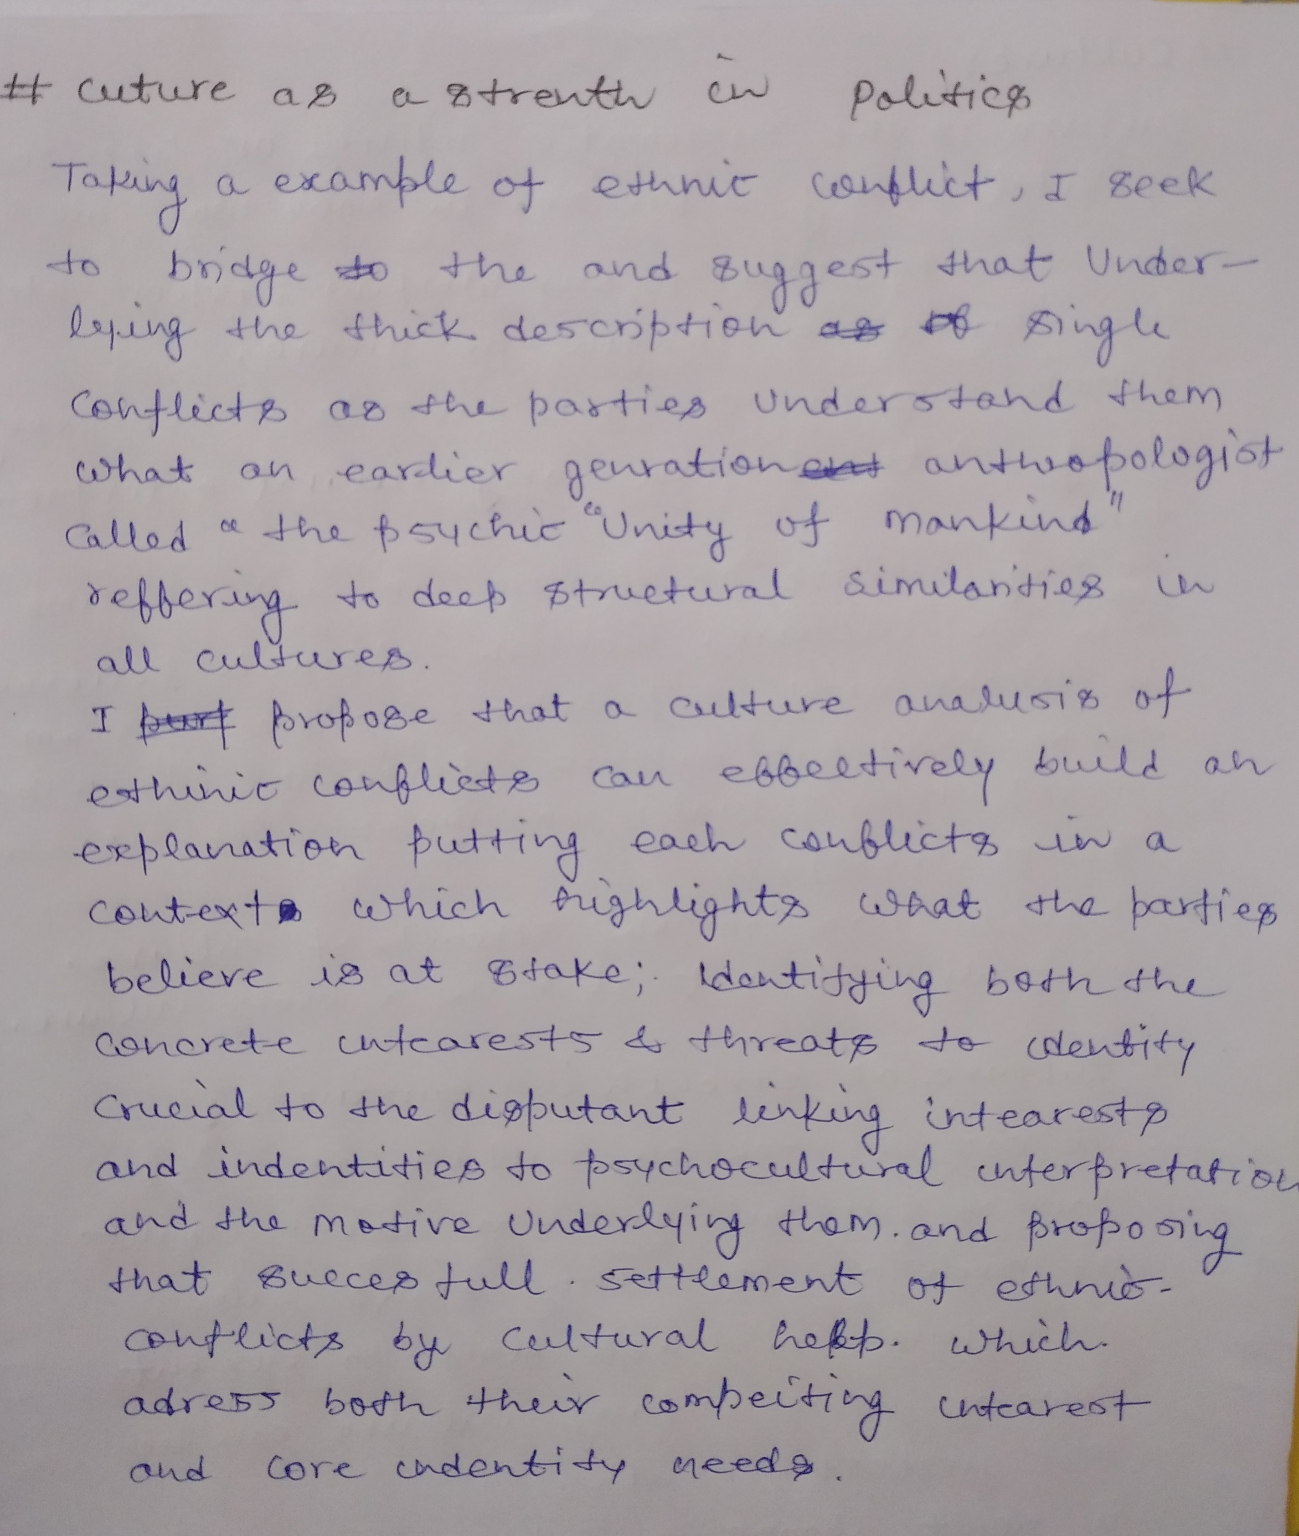 # Cuture as a strenth in Politics
Taking a example of ethnic conflict, I seek
to bridge to the and suggest that Under-
lying the thick description as of single
Conflicts as the parties understand them
what an earlier genration anthropologist
Called a the psychic "Unity of mankind"
reffering to deep structural similarities in
all cultures.
I propose that a culture analusis of
esthinic conflicts can effectively build an
explanation putting each conflicts in a
context which highlights what the parties
believe is at stake; Identifying both the
concrete intearests & threats to identity
Crucial to the disputant linking intearests
and indentities to psychocultural interpretation
and the motive Underlying them. and proposing
that succesfull. settlement of ethnic-
conflicts by cultural help. which.
adress both their compeiting intearest
and core indentity needs.